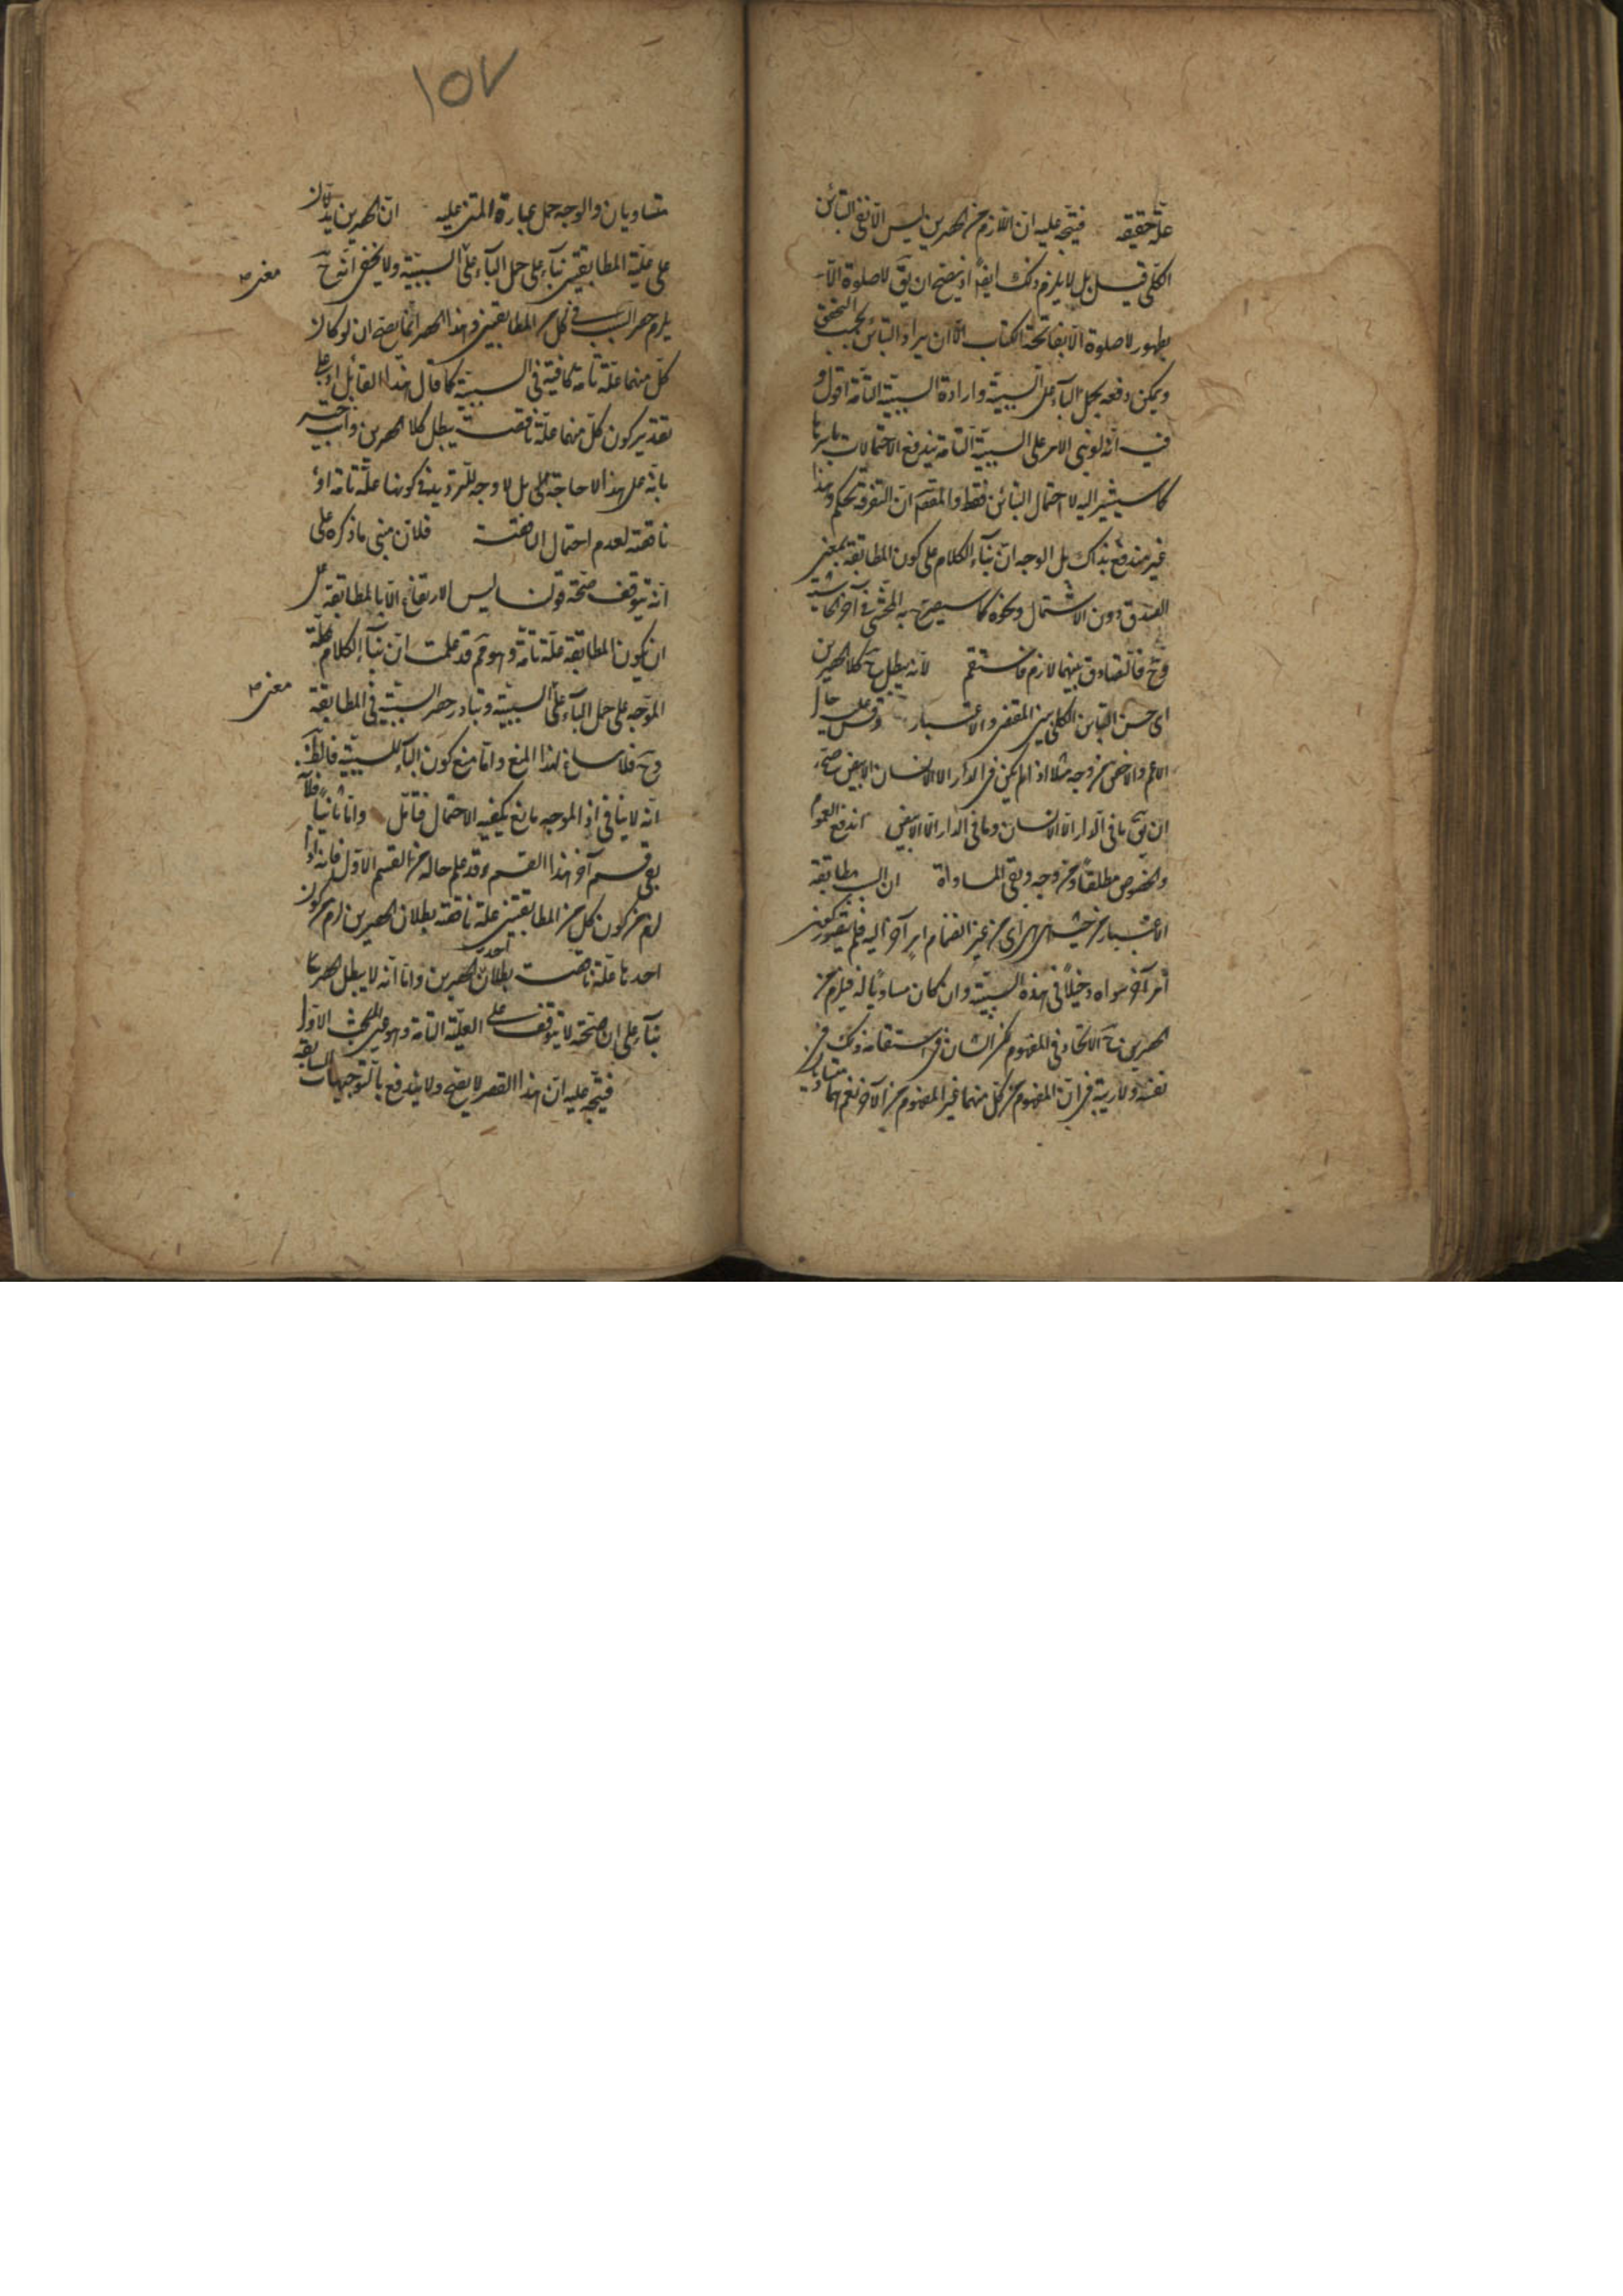 علة حقيقة فيتجه عليه ان اللازم من الحصرين ليس الا نفى التباين
الكلى قيل بل لا يلزم ذلك ايضا اذ يصح ان يق لا صلوة الا
بطهور لا صلوة الا بفاتحة الكتاب الا ان يراد التباين بحسب التحقق
ويمكن دفعه بحمل الباء على السببية وارادة السببية التامة اقول و
فيه انه لو بنى الامر على السببية التامة يندفع الاحتمالات باسرها
كما سيشير اليه لا احتمال التباين فقط والمقصم ان التفرقة تحكم وهذا
غير مندفع بذاك بل الوجه ان بناء الكلام على كون المطابقة بمعنى
الصدق دون الاشتمال ونحوه كما سيصرح به المحشى فى آخر الحاشية
وح فالتصادق بينهما لازم فاستقم لانه يبطل ح كلا الحصرين
اى حسن التباين الكلى بين المقتضى والاعتبار وقس عليه حال
الاعم والاخص من وجه مثلا اذا لم يكن فى الدار الا الانسان الابيض صح
ان يق ما فى الدار الا الانسان وما فى الدار الا الابيض اندفع العموم
والخصوص مطلقا ومن وجه وبقى المساواة ان المطابقة
الاعتبار من حيث هى هى اى من غير انضمام امر آخر اليه فلم يتصور كون
امر آخر سواه دخيلا فى هذه السببية وان كان مساويا له فيلزم من
الحصرين ح الاتحاد فى المفهوم لكن الشان فى استقامة ذلك فى
نفسه ولا ريبة فى ان المفهوم من كل منهما غير المفهوم من الآخر نعم هما متساويان
١٥٧
متساويان والوجه حمل عبارة المتن عليه ان الحصرين يدلان
على علية المطابقتين بناء على حمل الباء على السببية ولا يخفى انه ح
معنى
يلزم حصر السبب فى كل من المطابقتين وهذا الحصر انما يصح ان لو كان
كل منهما علة تامة كافية فى السببية كما قال هذا القائل او على
تقدير كون كل منهما علة ناقصة يبطل كلا الحصرين واجيب
بانه على هذا لا حاجة الى بل لا وجه للترديد فى كونها علة تامة او
ناقصة لعدم احتمال الناقصة فلان مبنى ما ذكره على
انه يتوقف صحة قولنا ليس الارتفاع الا بالمطابقة على
ان يكون المطابقة علة تامة وهو مم قد علمت ان بناء الكلام
الموجه على حمل الباء على السببية وتبادر حصر السببية فى المطابقة
معنى
وح فلا مساغ لهذا المنع واما منع كون الباء للسببية فالظ
انه لا ينافى اذ الموجه مانع يكفيه الاحتمال فتأمل واما ثانيا فلان
بقى قسم آخر هذا القسم قد علم حاله من القسم الاول فانه اذا
لزم من كون كل من المطابقتين علة ناقصة بطلان الحصرين لزم من كون
احدهما علة ناقصة بطلان احد الحصرين واما انه لا يبطل الحصر
بناء على ان صحته لا يتوقف على العلية التامة وهو عين البحث الاول
فيتجه عليه ان هذا القصر لا يصح ولا يندفع بالتوجيهات السابقة